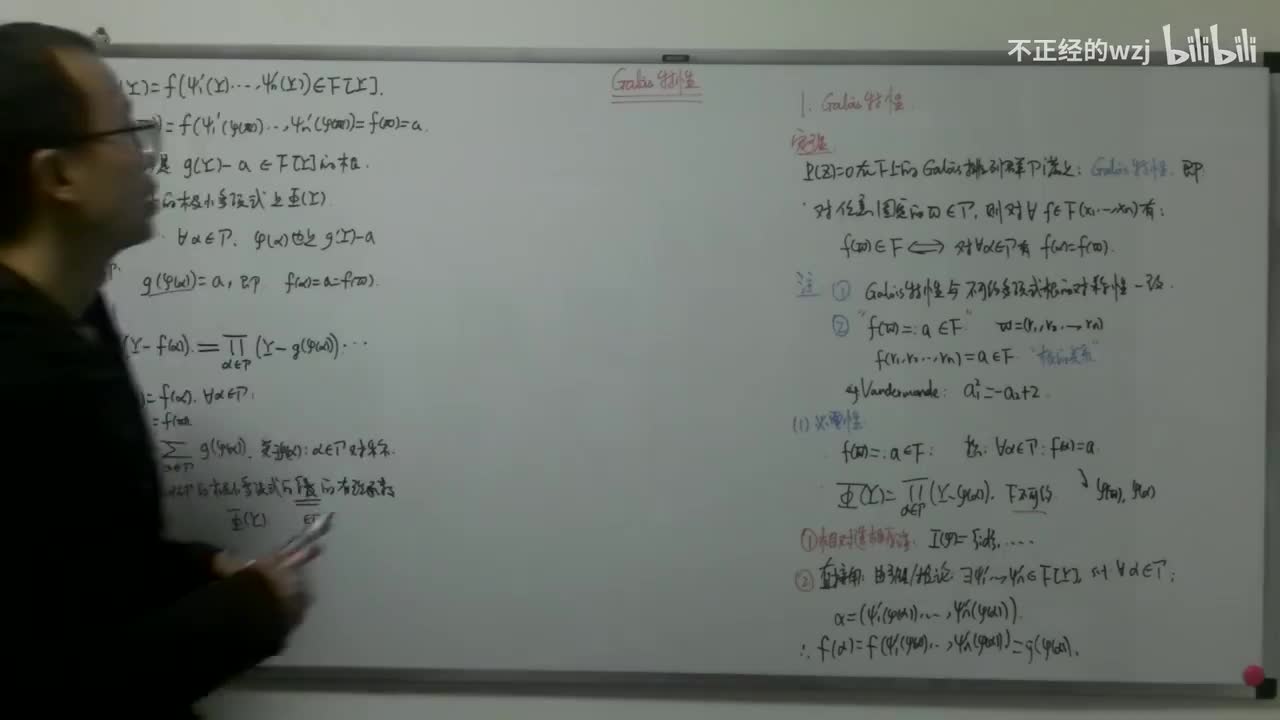 不正经的wzj bilibili
Galois 特性
(Y)=f(Ψ₁'(Y)⋯,Ψₙ'(Y))∈F[Y].
=f(Ψ₁'(φ(ϖ))⋯,Ψₙ'(φ(ϖ)))=f(ϖ)=a.
是 g(Y)-a ∈F[Y]的根.
的极小多项式是Φ(Y)
∀α∈P. φ(α)也是 g(Y)-a
g(φ(α))=a, 即 f(α)=a=f(ϖ).
(Y-f(α)).=∏(Y-g(φ(α)))⋯
α∈P
)=f(α). ∀α∈P.
=f(ϖ)
∑ g(φ(α)). α∈P 对
α∈P
的极小多项式的
Φ(Y)
1. Galois特性.
定理
P(Z)=0在F上的Galois排列群P满足: Galois特性. 即
对任意固定的ϖ∈P, 则对∀ f∈F(x₁⋯,xₙ)有:
f(ϖ)∈F⟺ 对∀α∈P有 f(α)=f(ϖ).
注 ① Galois特性与不可约多项式根的对称性一致.
② "f(ϖ)=:a∈F" ϖ=(r₁,r₂⋯,rₙ)
f(r₁,r₂,⋯,rₙ)=a∈F "根的关系"
eg Vandermonde: a₁²=-a₂+2.
(1)必要性
f(ϖ)=:a∈F: 于: ∀α∈P:f(α)=a.
Φ(Y)=∏(Y-φ(α)). F不可约 φ(ϖ), φ(α)
α∈P
① I(φ)={id},⋯.
② 直接用: 由引理/推论 ∃Ψ₁'⋯,Ψₙ'∈F[Y], 对∀α∈P;
α=(Ψ₁'(φ(α)),⋯,Ψₙ'(φ(α))).
∴ f(α)=f(Ψ₁'(φ(α)),⋯,Ψₙ'(φ(α)))=g(φ(α)).